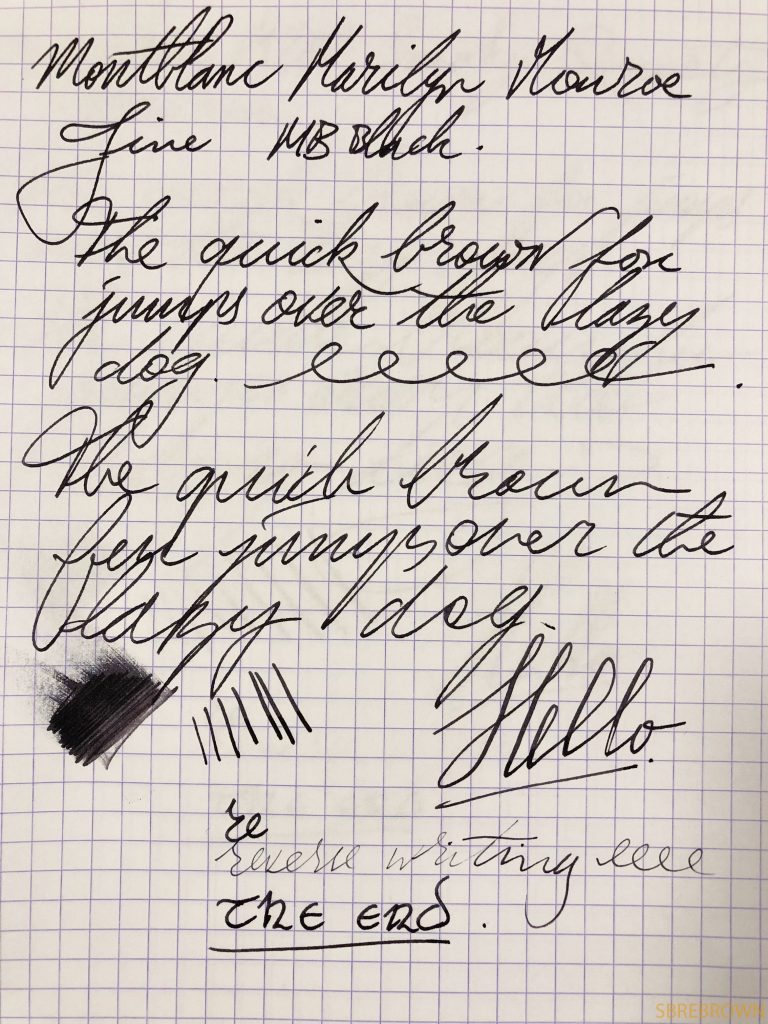 Montblanc Marilyn Monroe
fine MB Black.
The quick brown fox
jumps over the lazy
dog. eeeee.
The quick brown
fox jumps over the
lazy dog.
Hello.
re
reverse writing eeee
THE END.
SBREBROWN